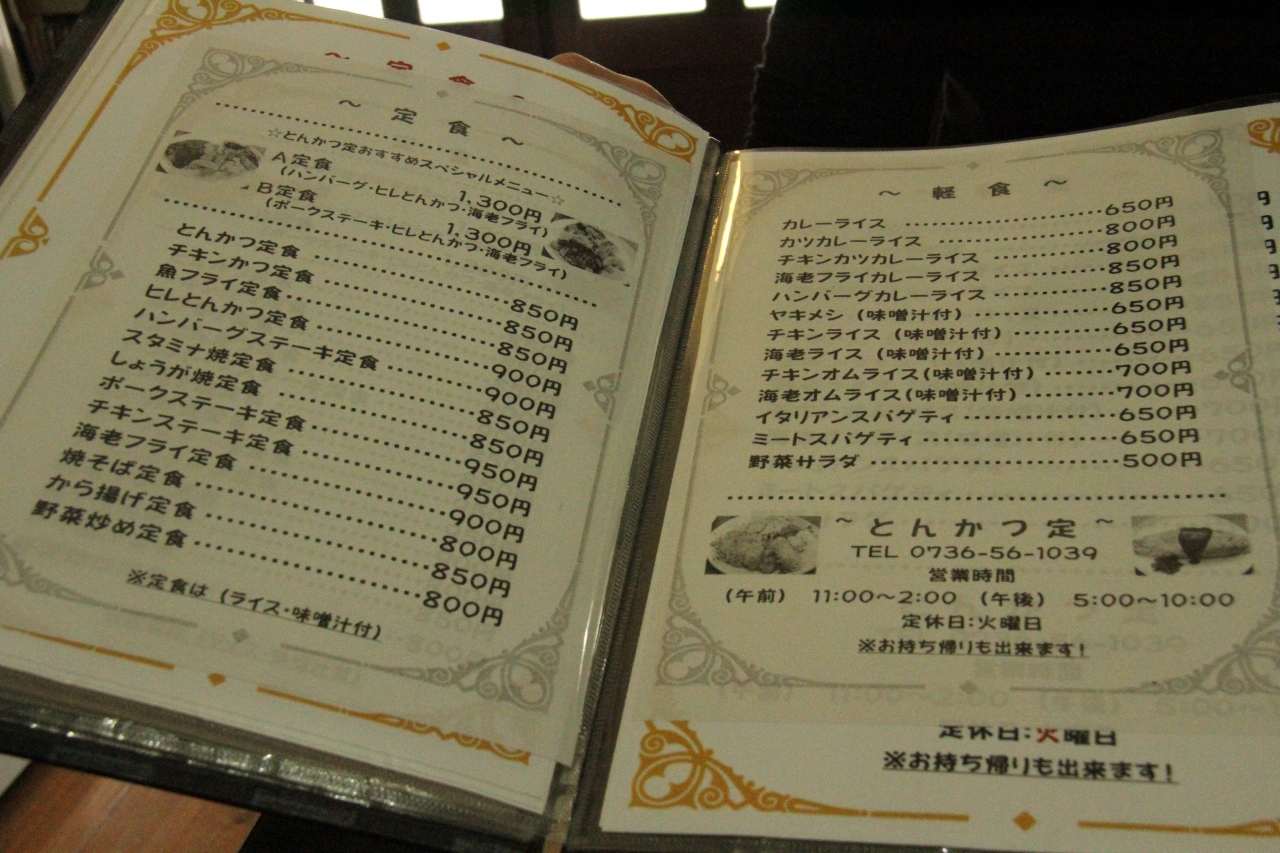 ～ 定 食 ～
☆とんかつ定おすすめスペシャルメニュー☆
A定食 1,300円
(ハンバーグ・ヒレとんかつ・海老フライ)
B定食 1,300円
(ポークステーキ・ヒレとんかつ・海老フライ)
とんかつ定食 850円
チキンかつ定食 850円
魚フライ定食 850円
ヒレとんかつ定食 900円
ハンバーグステーキ定食 900円
スタミナ焼定食 850円
しょうが焼定食 850円
ポークステーキ定食 950円
チキンステーキ定食 950円
海老フライ定食 900円
焼そば定食 800円
から揚げ定食 850円
野菜炒め定食 800円
※定食は（ライス・味噌汁付）
～ 軽 食 ～
カレーライス 650円
カツカレーライス 800円
チキンカツカレーライス 800円
海老フライカレーライス 850円
ハンバーグカレーライス 850円
ヤキメシ（味噌汁付） 650円
チキンライス（味噌汁付） 650円
海老ライス（味噌汁付） 650円
チキンオムライス(味噌汁付) 700円
海老オムライス(味噌汁付) 700円
イタリアンスパゲティ 650円
ミートスパゲティ 650円
野菜サラダ 500円
～ とんかつ定 ～
TEL 0736-56-1039
営業時間
（午前） 11:00～2:00 （午後） 5:00～10:00
定休日:火曜日
※お持ち帰りも出来ます!
定休日:火曜日
※お持ち帰りも出来ます!